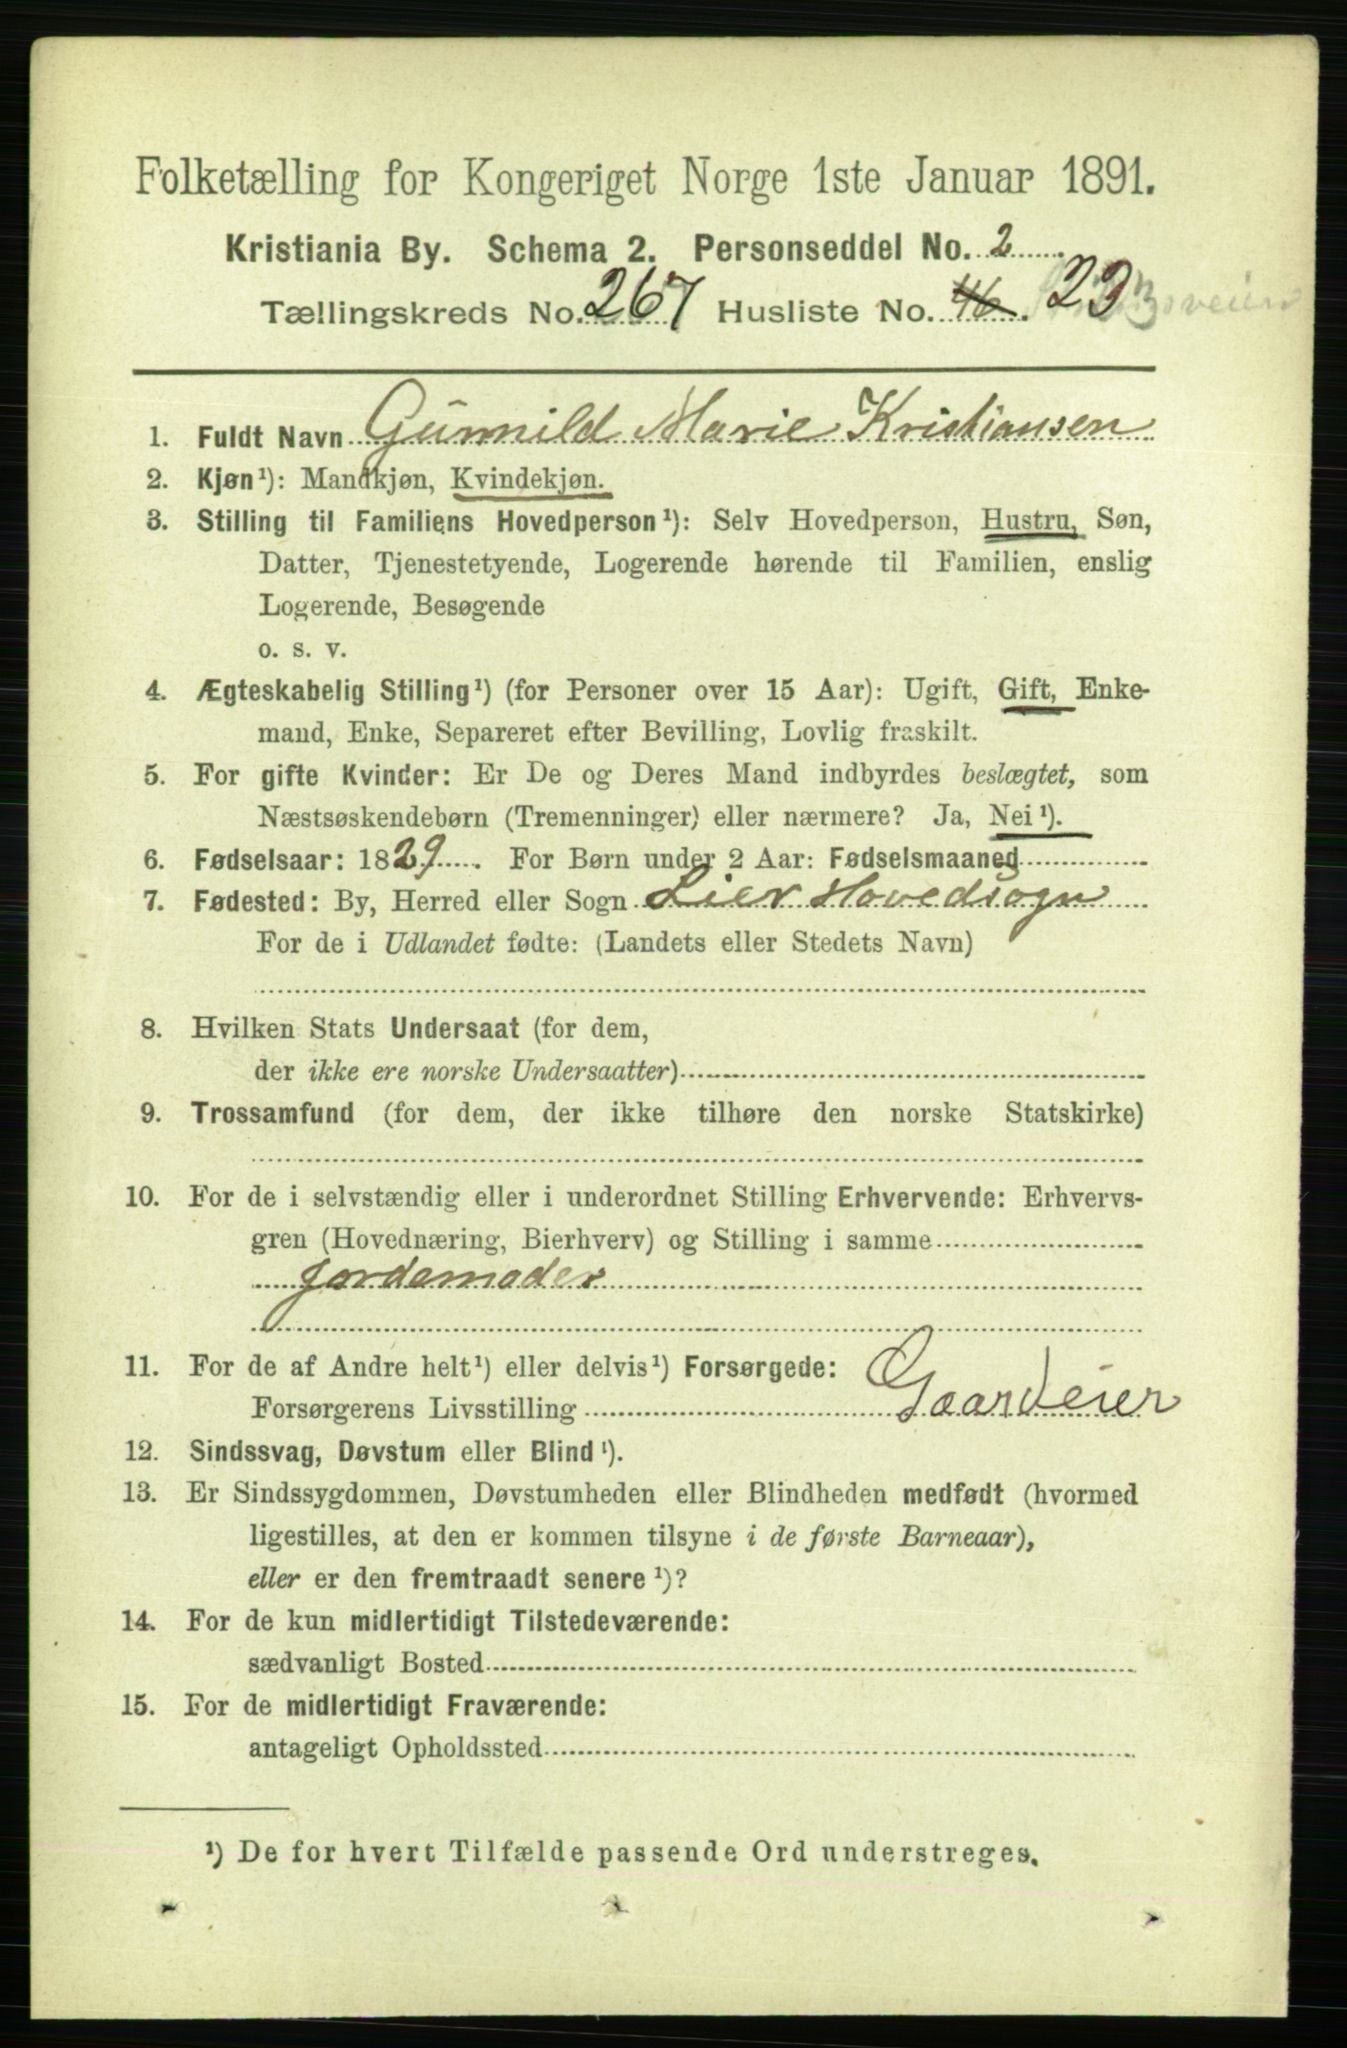 Folketælling for Kongeriget Norge 1ste Januar 1891.
Kristiania By. Schema 2. Personseddel No. 2
Tællingskreds No. 267 Husliste No. 46. 23
1. Fuldt Navn Gunnild Marie Kristiansen
2. Kjøn¹): Mandkjøn, Kvindekjøn.
3. Stilling til Familiens Hovedperson¹): Selv Hovedperson, Hustru, Søn,
Datter, Tjenestetyende, Logerende hørende til Familien, enslig
Logerende, Besøgende
o. s. v.
4. Ægteskabelig Stilling¹) (for Personer over 15 Aar): Ugift, Gift, Enke-
mand, Enke, Separeret efter Bevilling, Lovlig fraskilt.
5. For gifte Kvinder: Er De og Deres Mand indbyrdes beslægtet, som
Næstsøskendebørn (Tremenninger) eller nærmere? Ja, Nei¹).
6. Fødselsaar: 1829. For Børn under 2 Aar: Fødselsmaaned
7. Fødested: By, Herred eller Sogn Lier Hovedsogn
For de i Udlandet fødte: (Landets eller Stedets Navn)
8. Hvilken Stats Undersaat (for dem,
der ikke ere norske Undersaatter)
9. Trossamfund (for dem, der ikke tilhøre den norske Statskirke)
10. For de i selvstændig eller i underordnet Stilling Erhvervende: Erhvervs-
gren (Hovednæring, Bierhverv) og Stilling i samme
Jordemoder
11. For de af Andre helt¹) eller delvis¹) Forsørgede:
Forsørgerens Livsstilling Gaardeier
12. Sindssvag, Døvstum eller Blind¹).
13. Er Sindssygdommen, Døvstumheden eller Blindheden medfødt (hvormed
ligestilles, at den er kommen tilsyne i de første Barneaar),
eller er den fremtraadt senere¹)?
14. For de kun midlertidigt Tilstedeværende:
sædvanligt Bosted
15. For de midlertidigt Fraværende:
antageligt Opholdssted
¹) De for hvert Tilfælde passende Ord understreges.